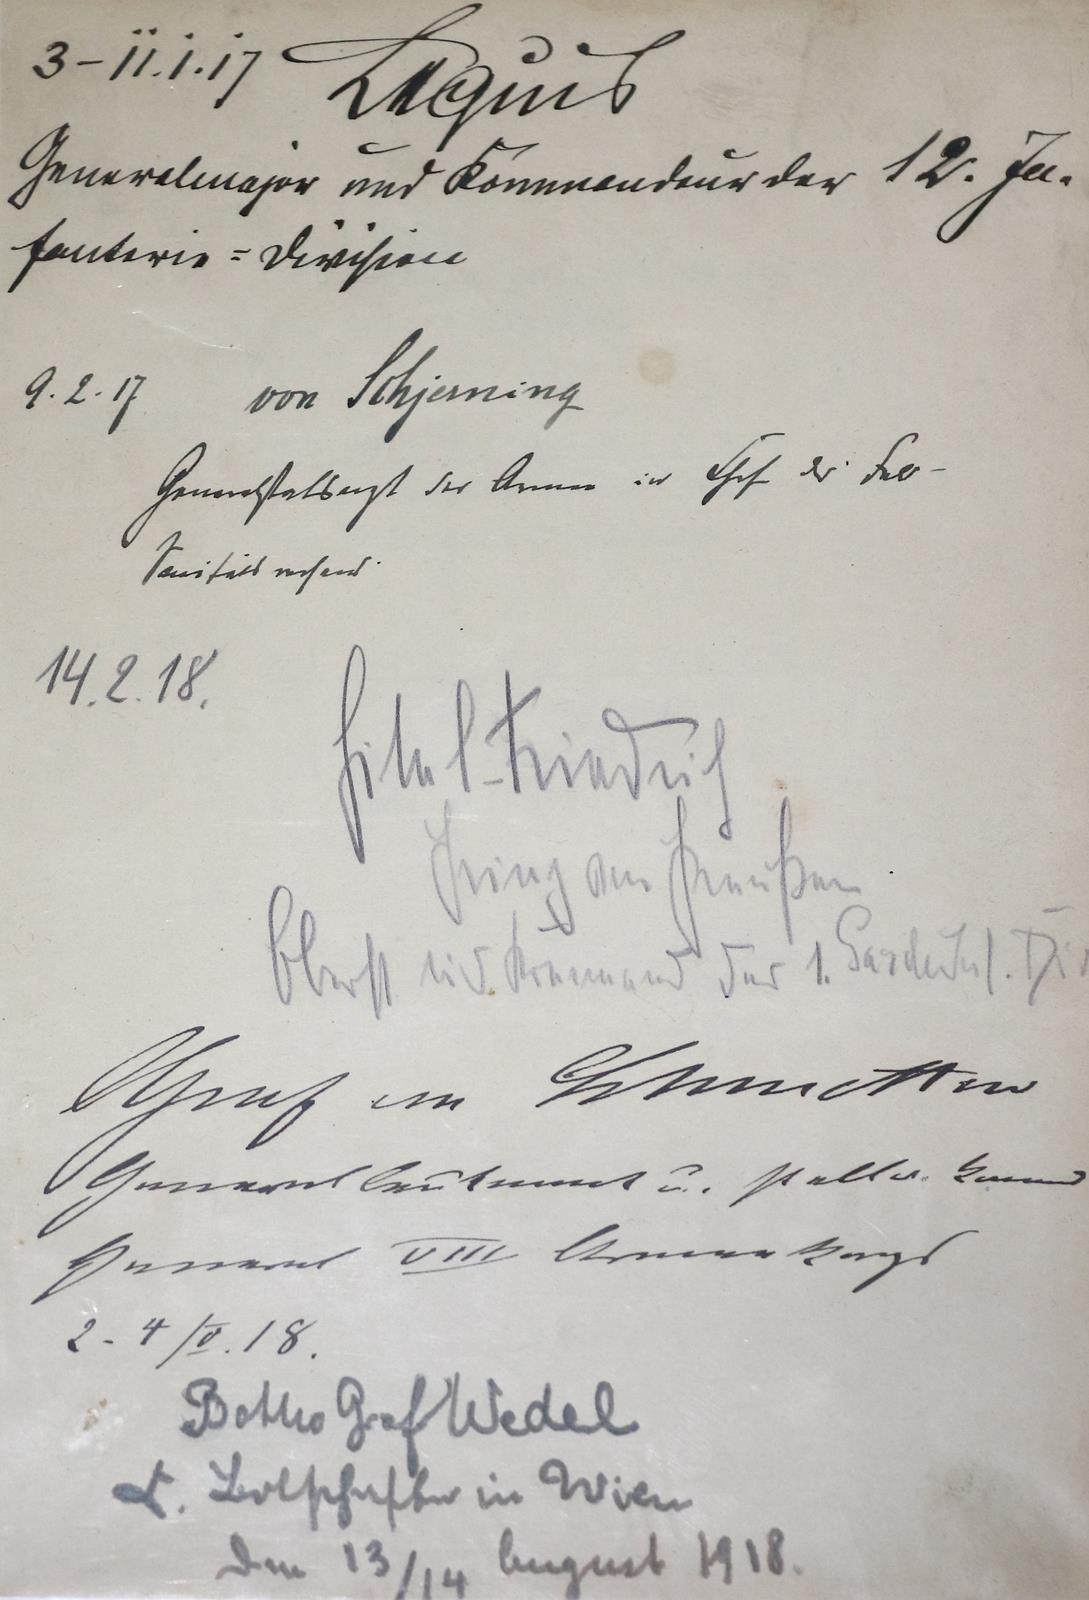 3-11.1.17 Lequis
Generalmajor und Kommandeur der 12. In-
fanterie = Division
9.2.17 von Schjerning
Generalstabsarzt der Armee und Chef des Feld-
Sanitätswesens
14.2.18.
Eitel-Friedrich
Prinz von Preußen
Oberst und Kommand der 1. Garde Inf. Div
Graf von Schmettow
Generalleutnant u. stellv. komm
General VIII Armeekorps
2-4/V.18.
Botho Graf Wedel
k. Botschafter in Wien
den 13/14 August 1918.